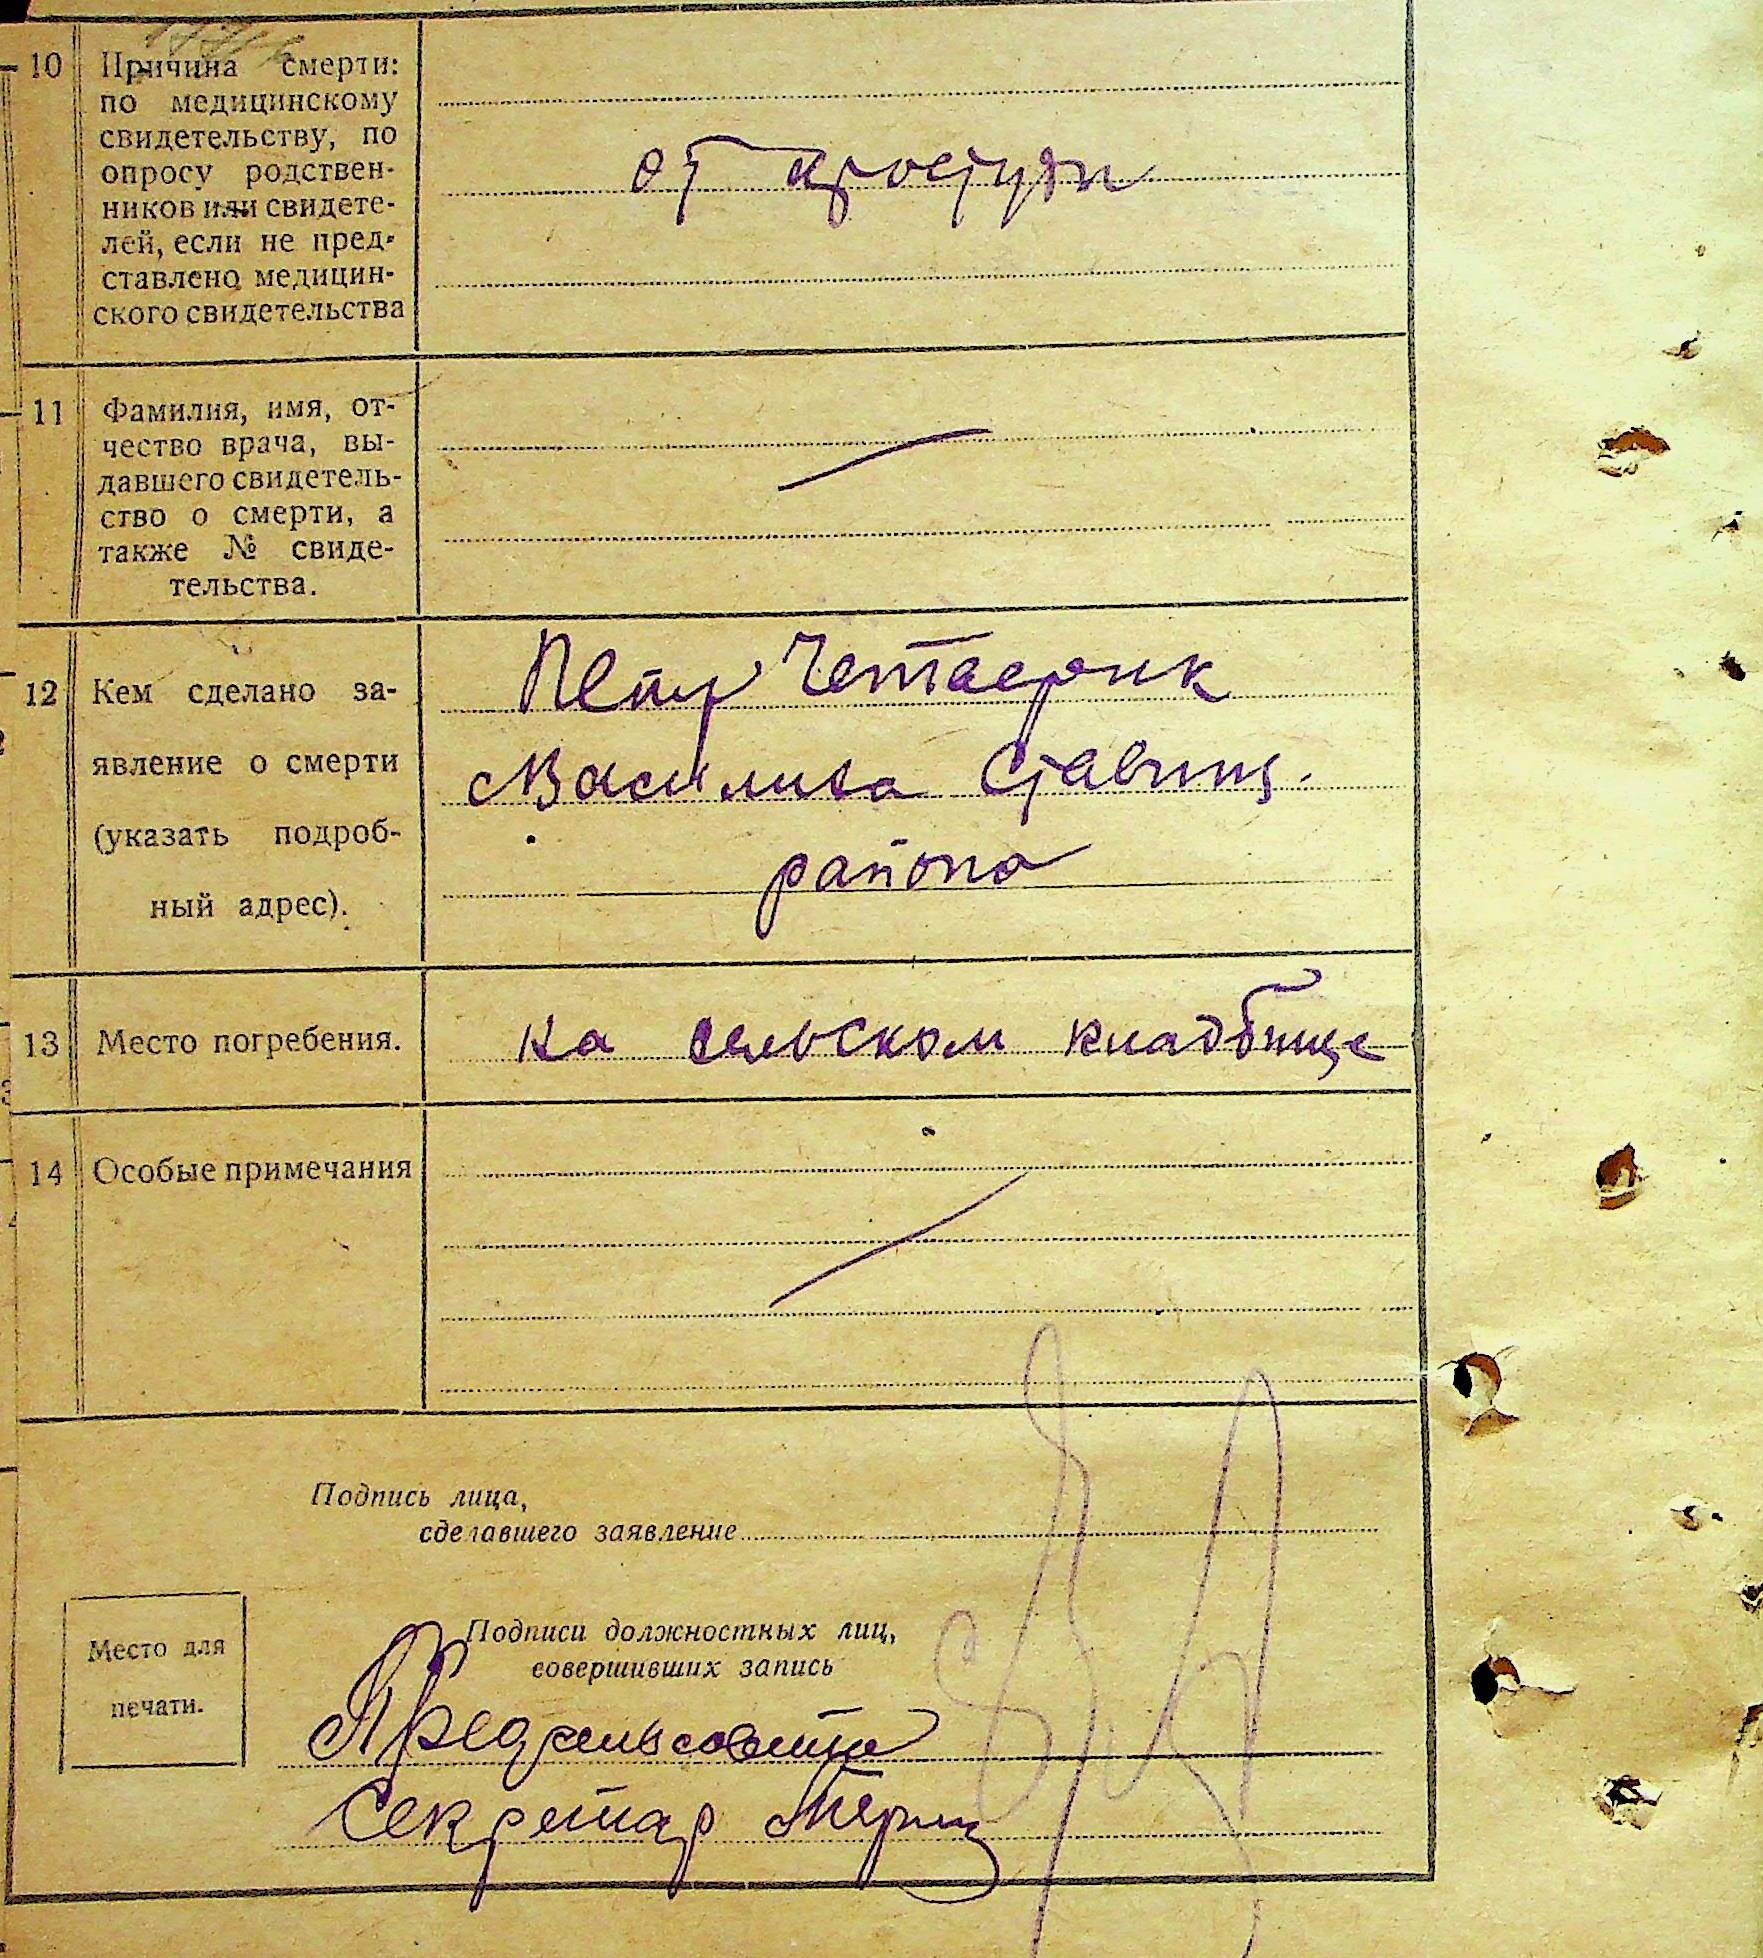 10 Причина смерти:
по медицинскому
свидетельству, по
опросу родствен-
ников или свидете-
лей, если не пред-
ставлено медицин-
ского свидетельства
от простуди
11 Фамилия, имя, от-
чество врача, вы-
давшего свидетель-
ство о смерти, а
также № свиде-
тельства.
12 Кем сделано за-
явление о смерти
(указать подроб-
ный адрес).
Петр Четверик
Василива Ставищ.
района
13 Место погребения.
на сельском кладбище
14 Особые примечания
Подпись лица,
сделавшего заявление
Место для
печати.
Подписи должностных лиц,
совершивших запись
Предсельсовета
Секретар